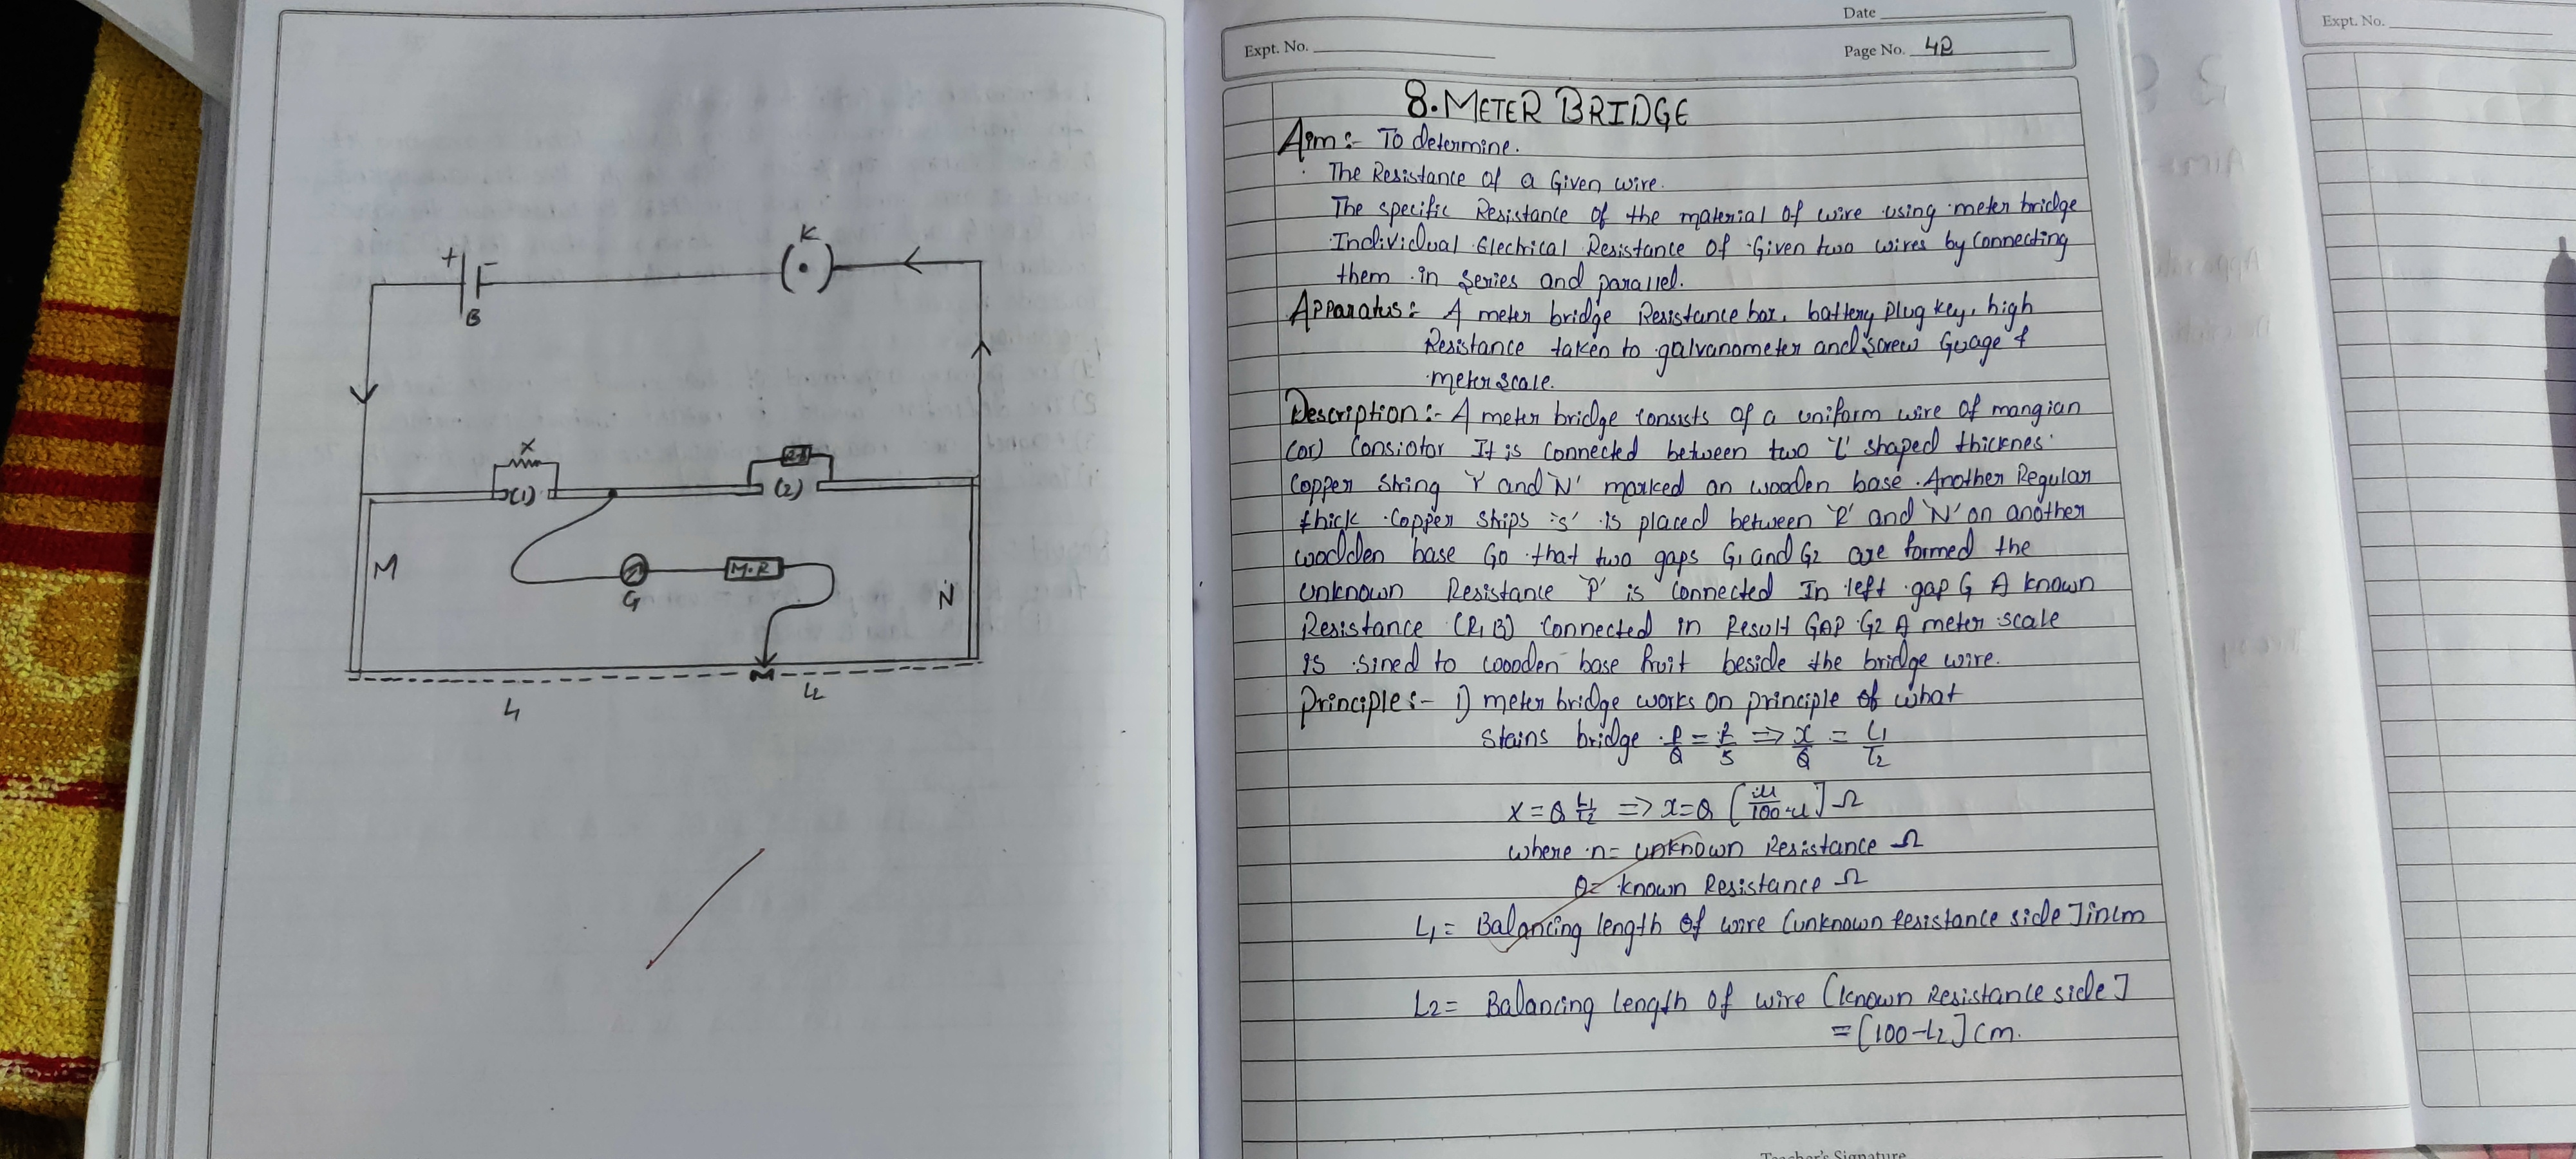 +
-
B
K
X
(1)
(2)
M
G
M.R
N
M
L1
L2
Date
Expt. No.
Page No. 42
8. METER BRIDGE
Aim:- To determine.
The Resistance of a Given wire.
The specific Resistance of the material of wire using meter bridge
Individual Electrical Resistance of Given two wires by connecting
them in series and parallel.
Apparatus:- A meter bridge Resistance box, battery plug key, high
Resistance taken to galvanometer and screw Guage &
meter scale.
Description:- A meter bridge consists of a uniform wire of mangian
(or) Consiotor It is connected between two 'L' shaped thicknes
Copper String 'Y' and N' marked on wooden base. Another Regular
thick Copper ships 's' is placed between 'R' and 'N' on another
woodden base Go that two gaps G1 and G2 are formed the
unknown Resistance 'P' is connected In left gap G A known
Resistance (R,B) connected in Result GAP G2 A meter scale
is sined to wooden base fruit beside the bridge wire.
Principle:- 1) meter bridge works on principle of what
stains bridge P/Q = R/S => x/Q = L1/L2
X = Q L1/L2 => x = Q [ /100-L1] Ω
where n= unknown Resistance Ω
Q= known Resistance Ω
L1= Balancing length of wire [unknown Resistance side] in cm
L2= Balancing length of wire [known Resistance side]
=[100-L2] cm.
Teacher's Signature
Expt. No.